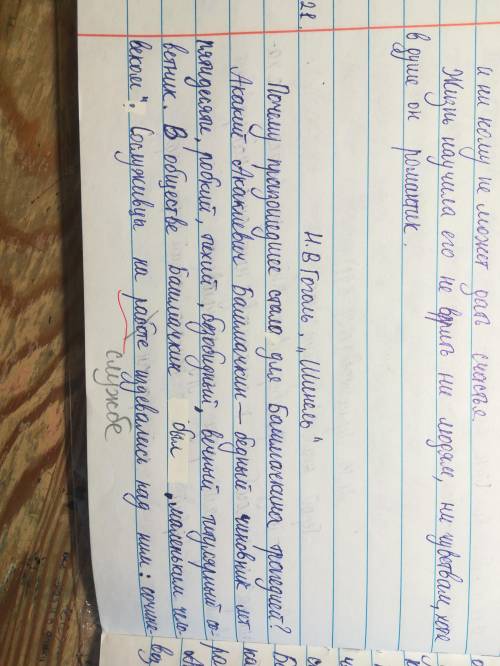 и ни кому не может дать счастье.
Жизнь научила его не верить ни людям, ни чувствам, хотя
в душе он романтик.
28.
Н. В Гоголь „Шинель"
Почему происшедшее стало для Башмачкина трагедией?
Акакий Акакиевич Башмачкин – бедный чиновник лет
пятидесяти, робкий, тихий, безобидный, вечный титулярный со-
ветник. В обществе Башмачкин был „маленьким чел-
веком". Сослуживцы на работе издевались над ним: сочиня-
службе